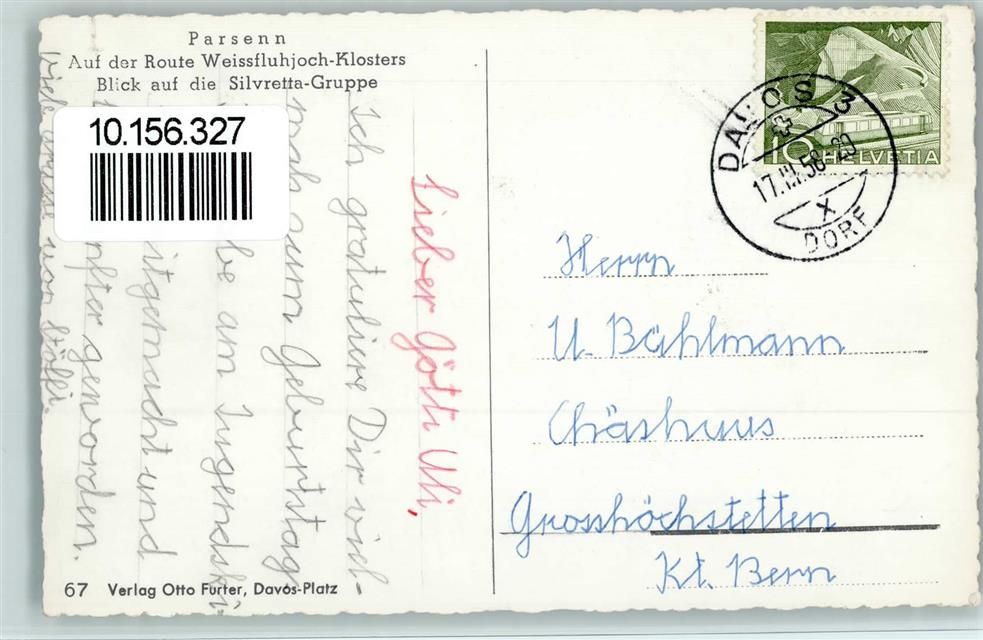 Parsenn
Auf der Route Weissfluhjoch-Klosters
Blick auf die Silvretta-Gruppe
10.156.327
Lieber Götti Uli,
Ich gratuliere Dir viel-
mals zum Geburtstag
be am Jugendski-
itgemacht und
nfter geworden.
Viele Grüsse von
67 Verlag Otto Furter, Davos-Platz
10 HELVETIA
DAVOS 3
17.III.58-20
X
DORF
Herrn
U. Bählmann
Chäshuus
Grosshöchstetten
Kt. Bern